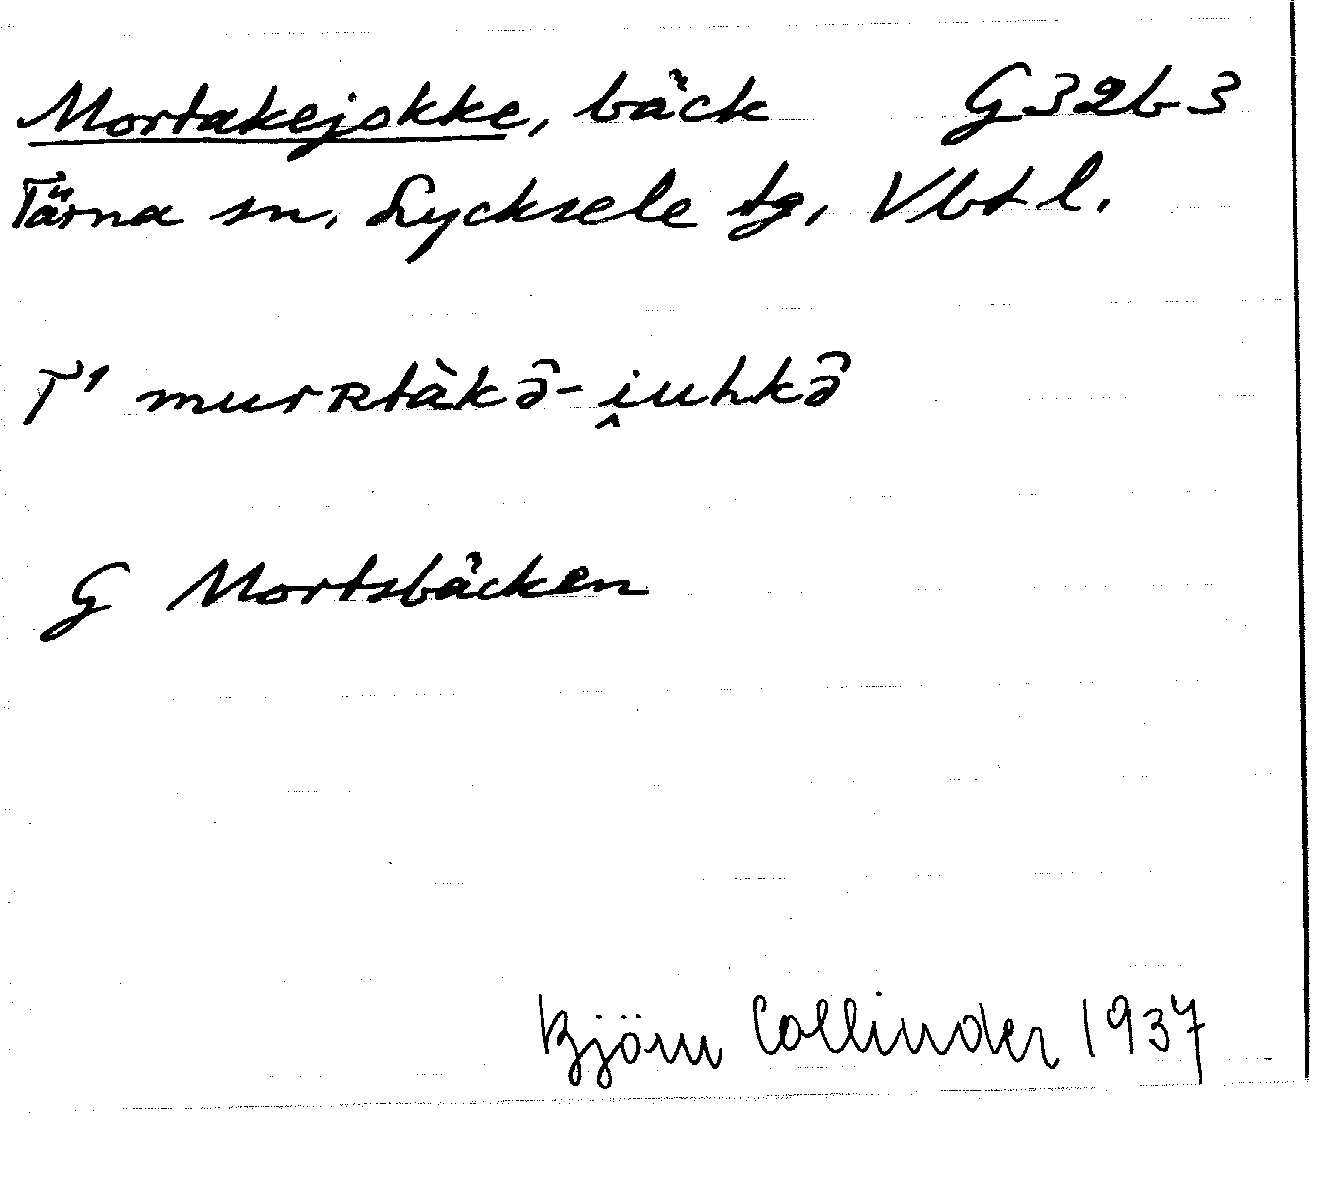 Mortakejokke, bäck G32b3
Tärna sn, Lycksele tg, Vbtl.
T' murʀtàkə̑-i̯uhkə̑
G Mortsbäcken
Björn Collinder 1937